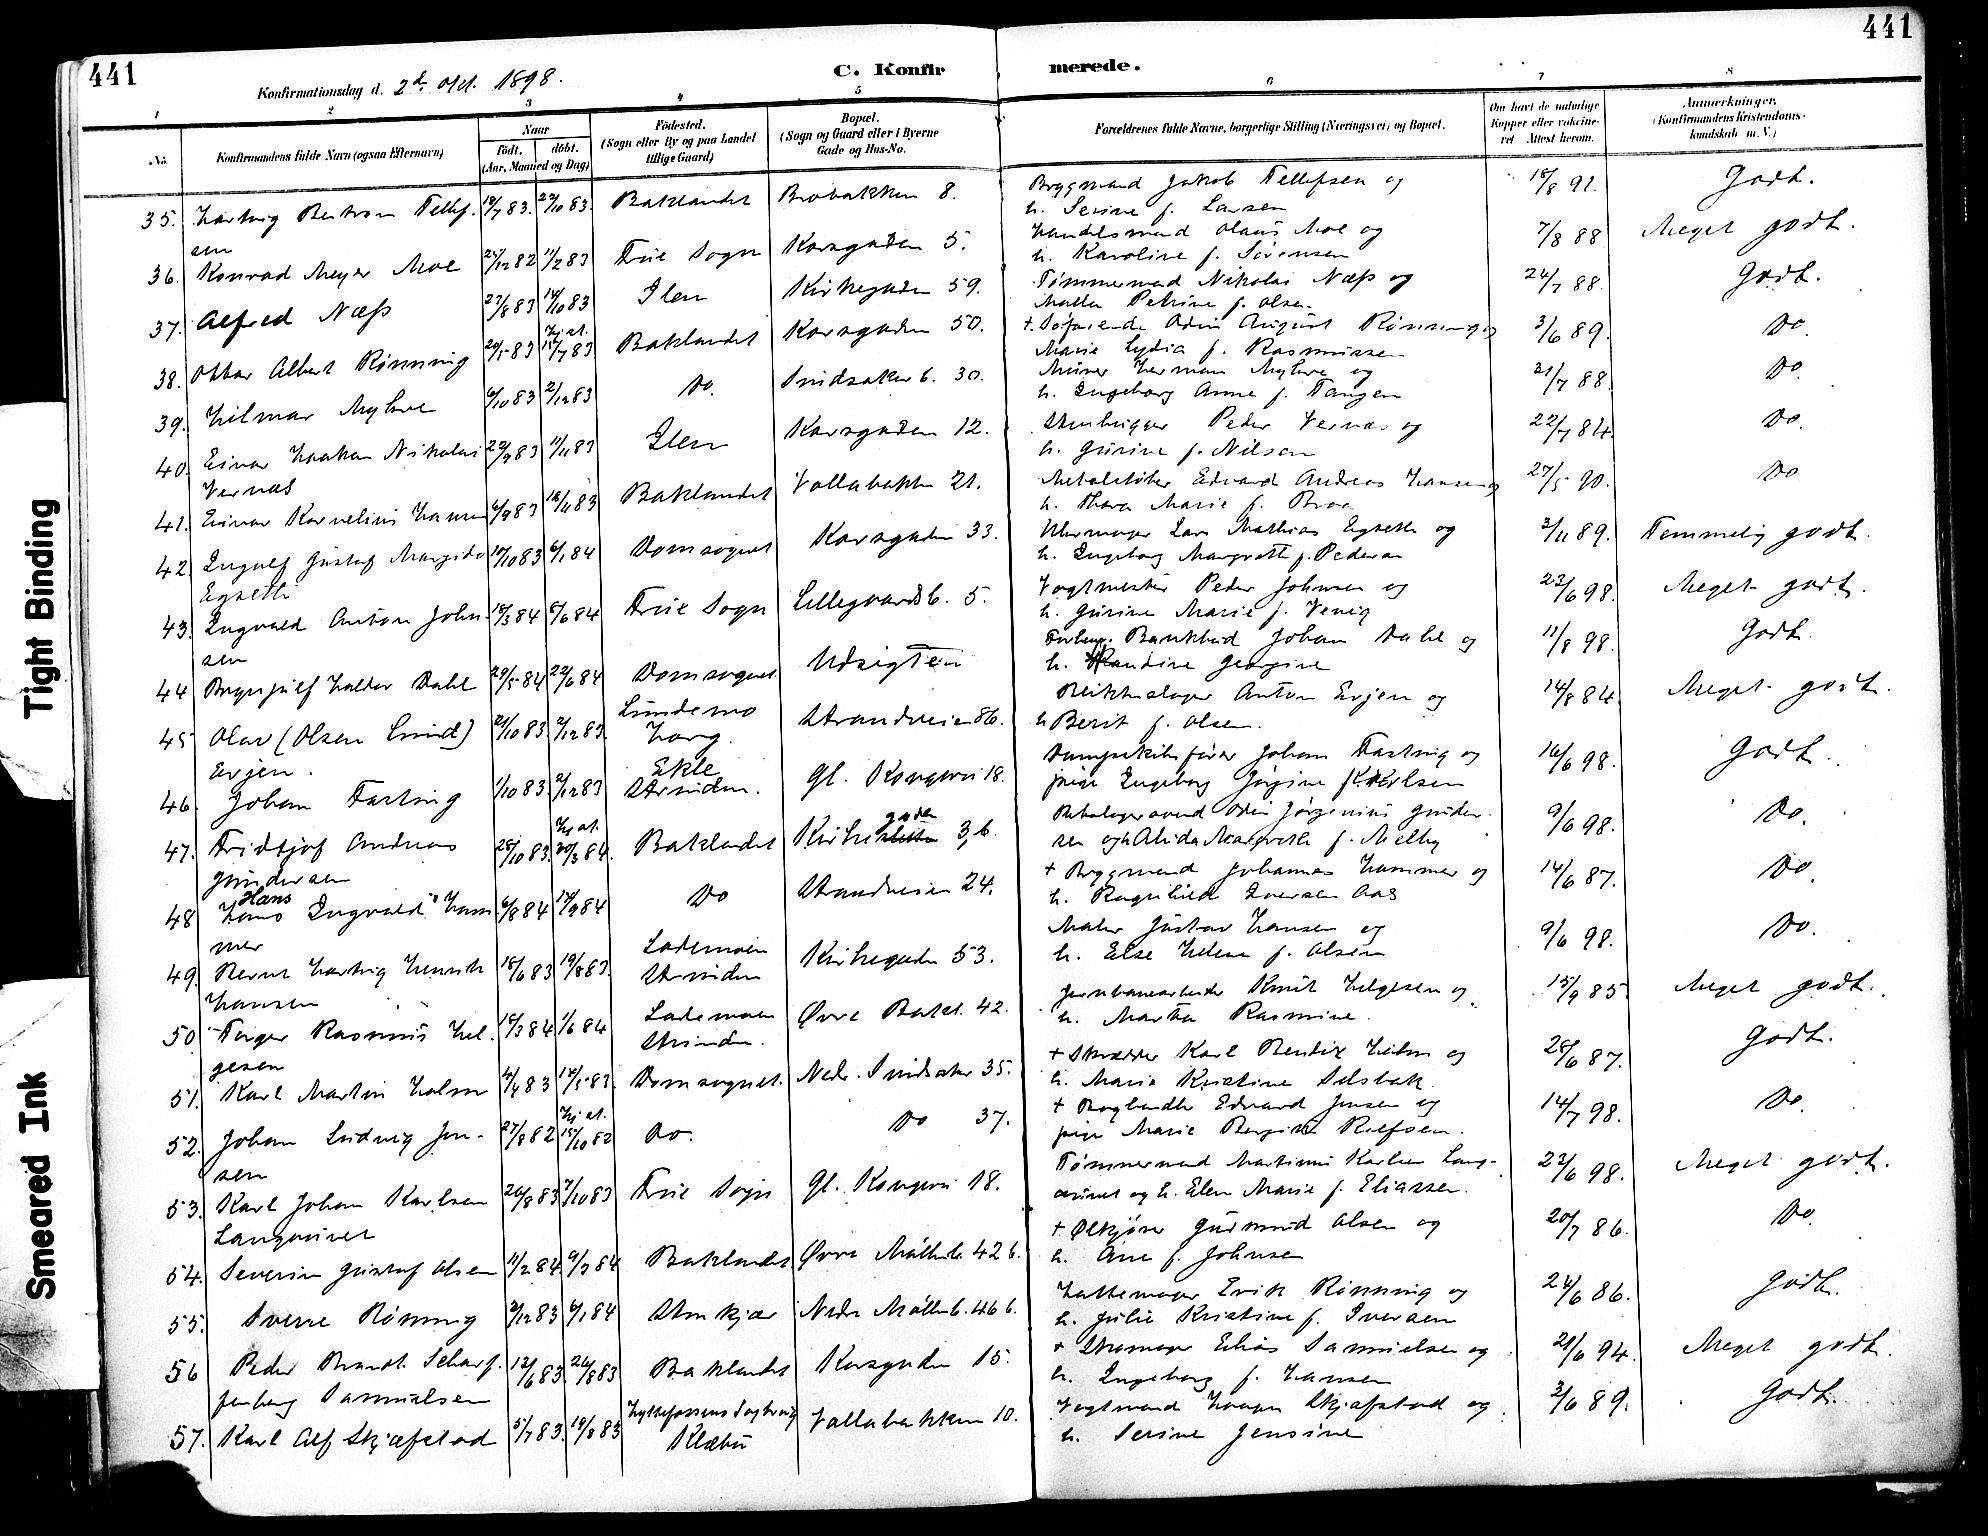 441
441
C. Konfirmerede.
Konfirmationsdag d. 2d. Okt. 1898.
1 2 3 4 5 6 7 8
No.
Konfirmandens fulde Navn (ogsaa Efternavn)
Naar
Født. døbt.
(Aar, Maaned og Dag)
Fødested.
(Sogn eller By og paa Landet
tillige Gaard)
Bopæl.
(Sogn og Gaard eller i Byerne
Gade og Hus-No.
Forældrenes fulde Navne, borgerlige Stilling (Næringsvei) og Bopæl.
Om havt de naturlige
Kopper eller vakcine-
ret Attest herom.
Anmerkninger.
(Konfirmandens Kristendoms-
kundskab m. V.)
35. Hartvig Bertram Tellef- 83. 83. Baklandet Brobakken 8. Brygmand Jakob Tellefsen og 18/8 91. Godt.
sen h. Serine f. Larsen
36. Konrad Meyer Moe 82 11/2 83 Frue Sogn Korsgaden 5. Handelsmand Olaus Moe og 7/8 88 Meget godt.
h. Karoline f. Sørensen
37. Alfred Næss 27/8 83 14/10 83 Ilen Kirkegaden 59. Tømmermand Nikolai Næss og 24/7 88. Godt.
Petrine f. Olsen
38. Ottar Albert Rønning 20/5 83 hj. at. 15/7 83 Baklandet Korsgaden 50. + Søfarende Odin August Rønning og 3/6 89. Do.
Marie Lydia f. Rasmussen
39. Hilmar Myhre 6/10 83 2/12 83 Do. Smedsaker b. 30. Murer Herman Myhre og 21/7 88. Do.
h. Ingeborg Anna f. Tangen
40. Einar Haakon Nikolai 83 11/11 83 Ilen Korsgaden 12. Stenhugger Peder Vernæs og 22/7 84. Do.
Vernæs h. Gurine f. Nilsen
41. Einar Kornelius Hansen 6/9 83 18/11 83 Baklandet Vollabakken 21. Metalstøber Edvard Andreas Hansen og 27/5 90. Do
h. Thora Marie f. Broa
42. Ingolf Gustaf Margido 10/10 83 6/1 84 Domsognet Korsgaden 33. Uhrmager Lars Mathias Egseth og 3/11 89. Temmelig godt.
Egseth h. Ingeborg Margreth f. Pedersen
43. Ingvald Anton John- 18/3 84 8/6 84 Frue Sogn Lillegaardsb. 5. Vogtmester Peder Johnsen og 23/6 98. Meget godt.
sen h. Gurine Marie f. Venig
44 Brynjulf Haldor Dahl 29/5 84 22/6 84 Domsognet Udsigten Forhenv. Bankbud Johan Dahl og 11/8 98. Godt.
h. Randine Georgine
45 Olav (Olsen Lund) 21/10 83. 2/12 83. Lundemo Strandveien 86. Blikkenslager Anton Evjen og 14/8 84. Meget godt.
Evjen. Horg. h. Berit f. Olsen.
46. Johan Fasting 1/10 83. 2/12 83 Ekle gl. Kongevei 18. Dampskibsfører Johan Fasting og 16/6 98. Godt.
Strinden. pige Ingeborg Jørgine
47. Fridtjof Andreas 28/10 83. hj. at. 30/3 84. Baklandet Kirkegaden 3,b. Odin Jørgenius Gunder- 9/6 98. Do.
Gundersen sen og h. Alida Margrethe f. Melby
48 Hans Ingvald Ham 6/8 84 84 Do Strandveien 24. + Brygmand Johannes Hammer og 14/6 87. Do.
mer h. Ragnhild Iversen Aas
49. Bernt Hartvig Henrik 18/6 83 19/8 83. Lademoen Kirkegaden 53. Maler Gustav Hansen og 9/6 98. Do.
Hansen Strinden h. Else Helene f. Olsen
50 Torger Rasmus Hel- 18/3 84 1/6 84 Lademoen Øvre Bakl. 42. Jernbanearbeider Knut Helgesen og 15/9 85. Meget godt.
gesen Strinden. h. Marta Rasmine.
51. Karl Martin Holm 4/4 83 83. Domsognet. Nedr. Smedsaker 35. + Skrædder Karl Bendix Holm og 28/6 87. Godt.
h. Marie Kristine Selsbak.
52. Johan Ludvig Jen- 27/8 82 hj. at. 15/10 82 Do. Do 37. + Boghandler Edvard Jensen og 14/7 98. Do.
sen pige Marie Bergitte Rolfsen.
53. Karl Johan Karlsen 26/8 83 7/10 83 Frue Sogn gl. Kongevei 18. Tømmermand Martinus Karlsen Lang- 23/6 98. Meget godt.
Langørinet ørinet og h. Elen Marie f. Eliassen.
54. Severin Gustaf Olsen 11/2 84 9/3 84 Baklandet Øvre Møllenb. 42 b. + Ølkjører Gudmund Olsen og 20/7 86. Do.
h. Ane f. Johnsen
55. Sverre Rønning 2/12 83 6/1 84 Stenkjær Nedre Møllenb. 46 b. Hattemager Erik Rønning og 24/6 86. Godt.
h. Julie Kristine f. Iversen
56 Peder Brandt Scharf- 12/6 83 26/8 83 Baklandet Korsgaden 15. + Skomager Elias Samuelsen og 21/6 94. Meget godt.
fenberg Samuelsen h. Ingeborg f. Hansen
57. Karl Alf Skjefstad 5/7 83. 19/8 83 Hyttefossens Sagbrug Vollabakken 10. Vogtmand Haagen Skjefstad og 3/6 89. Godt.
Klæbu h. Serine Jensine
Tight Binding
Smeared Ink